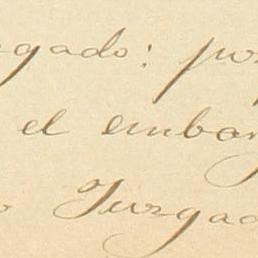 gado: por
el embar
o Juzgad